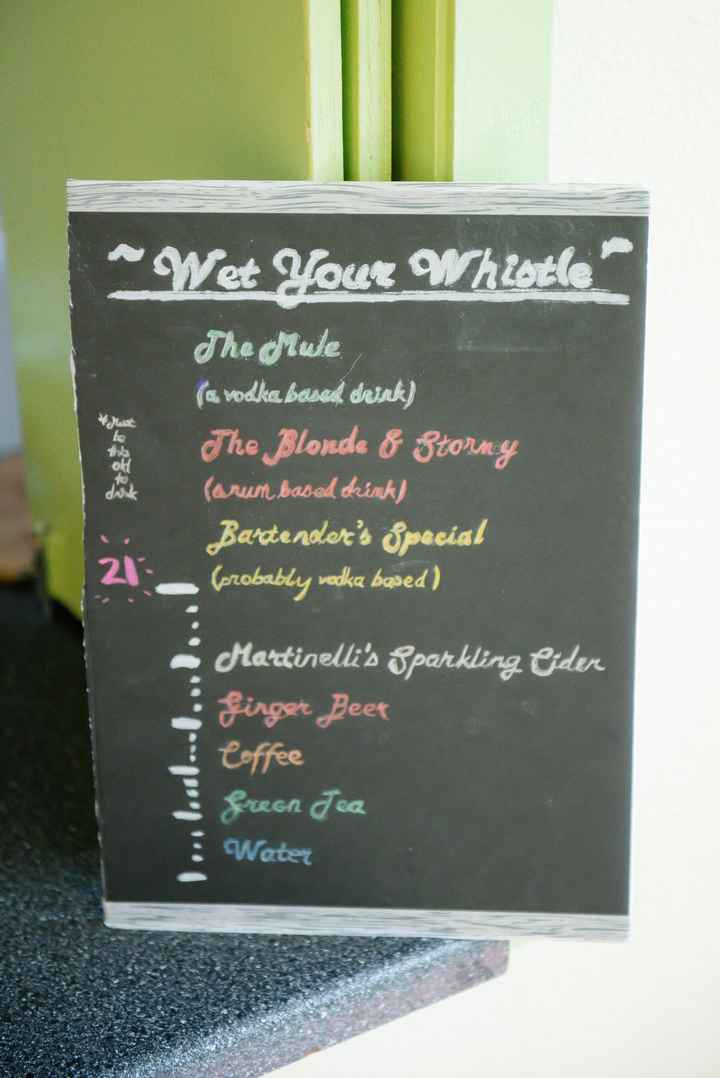 ~ Wet Your Whistle ~
The Mule
(a vodka based drink)
The Blonde & Stormy
(a rum based drink)
Bartender's Special
(probably vodka based)
*Must
be
this
old
to
drink
21
Martinelli's Sparkling Cider
Ginger Beer
Coffee
Green Tea
Water